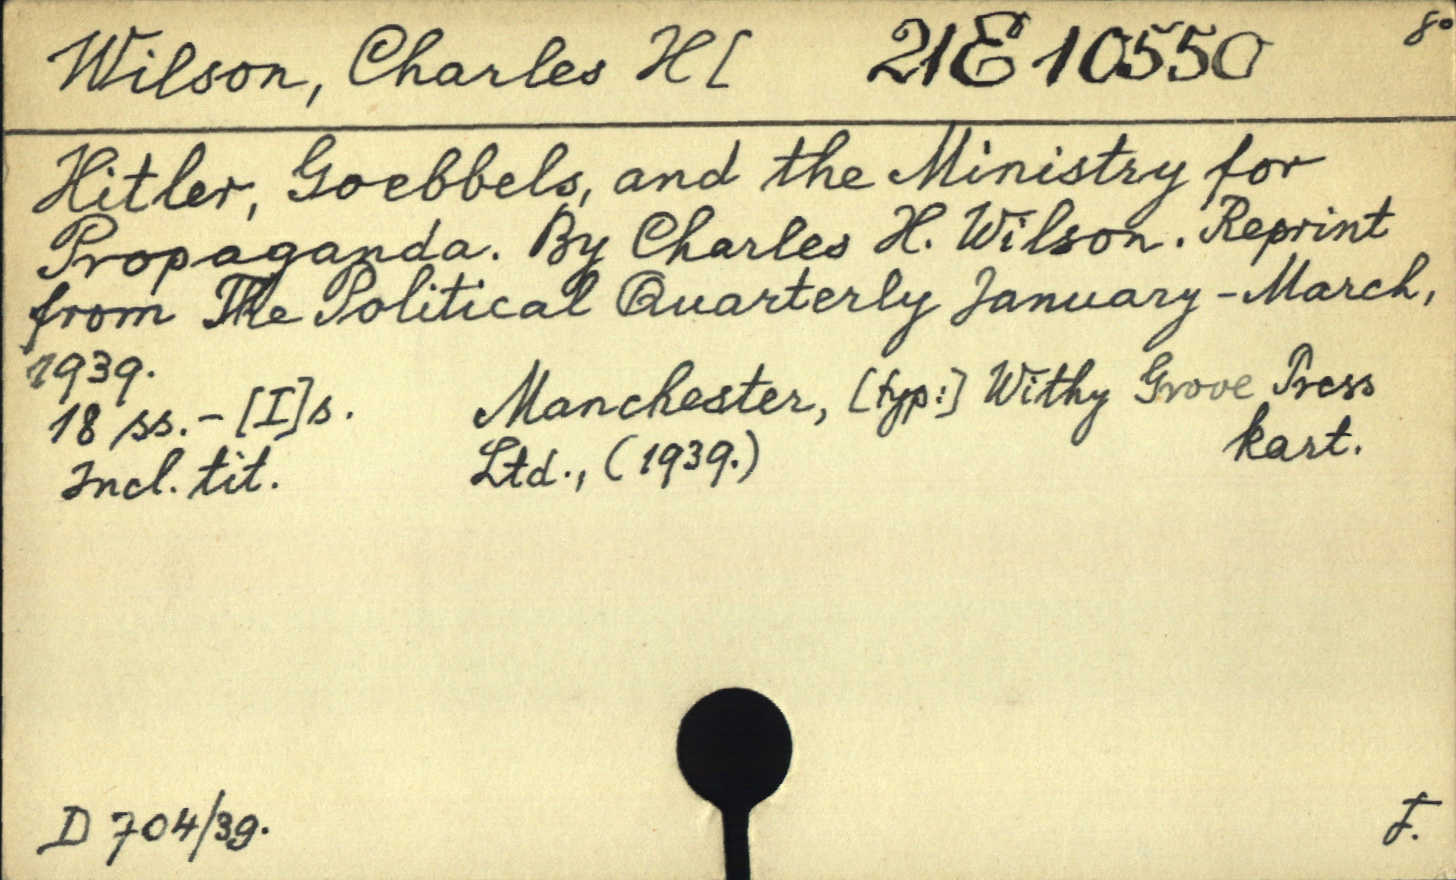 Wilson, Charles H[ 21E 10550 8°
Hitler, Goebbels, and the Ministry for
Propaganda. By Charles H. Wilson. Reprint
from The Political Quarterly January-March,
1939.
18 ss. - [I]s. Manchester, [typ:] Withy Grove Press
Incl. tit. Ltd., (1939.) kart.
D 704/39. F.